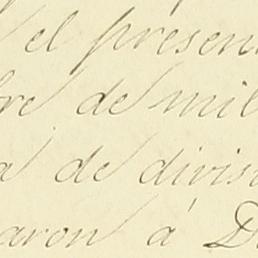 el presen
re de mil
a de divis
aron á D